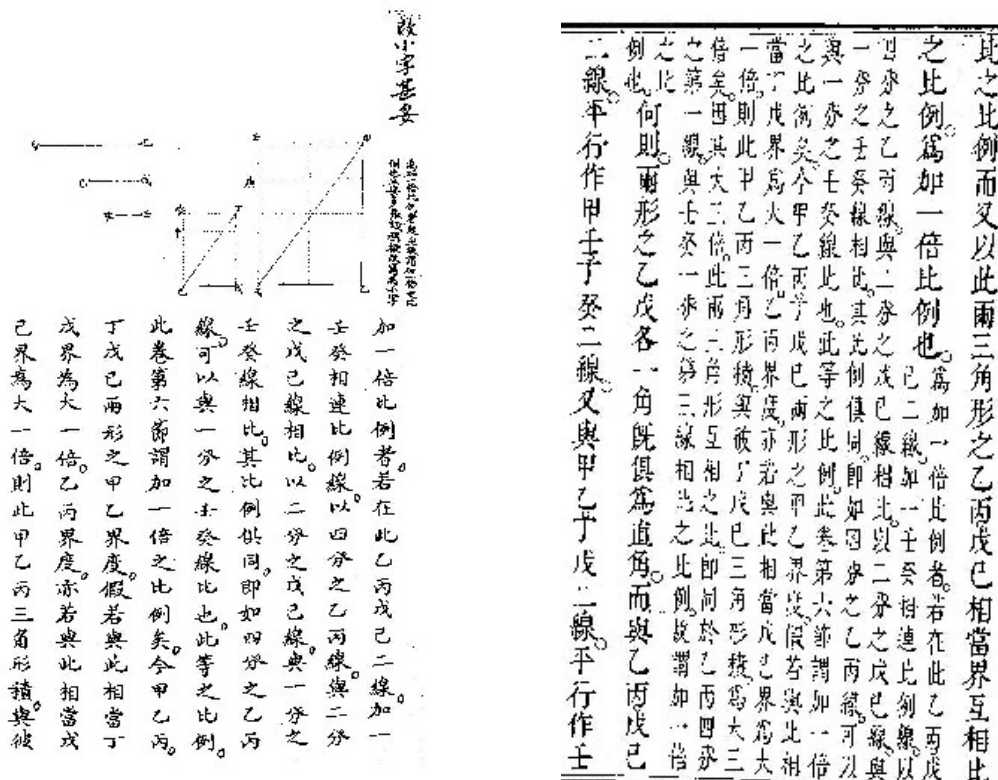 此之比例而又以此兩三角形之乙丙戊己相當界互相比
之比例。爲如一倍比例也。爲如一倍比例者。若在此乙丙戊
己二線。如一壬癸相連比例線。以
四分之乙丙線。與二分之戊己線相比。以二分之戊己線。與
一分之壬癸線相比。其比例俱同。即如四分之乙丙線。可以
與一分之壬癸線比也。此等之比例。此卷第六節謂如一倍
之比例矣。今甲乙丙丁戊己兩形之甲乙界度。假若與此相
當丁戊界爲大一倍。乙丙界度。亦若與此相當戊己界爲大
一倍。則此甲乙丙三角形積。與彼丁戊己三角形積爲大三
倍矣。因其大三倍。此兩三角形互相之比。即同於乙丙四分
之第一線。與壬癸一分之第三線相比之比例。故謂如一倍
之比
例也。何則。兩形之乙戊各一角。既俱爲直角。而與乙丙戊己
二線。平行作甲壬子癸二線。又與甲乙丁戊二線。平行作壬
改小字甚妥
加一倍比例者若在此乙丙戊己二線。加一
壬癸相連比例線。以四分之乙丙線。與二分
之戊己線相比。以二分之戊己線。與一分之
壬癸線相比。其比例俱同。即如四分之乙丙
線。可以與一分之壬癸線比也。此等之比例。
此卷第六節謂加一倍之比例矣。今甲乙丙。
丁戊己兩形之甲乙界度。假若與此相當丁
戊界為大一倍。乙丙界度。亦若與此相當戊
己界為大一倍。則此甲乙丙三角形積與彼